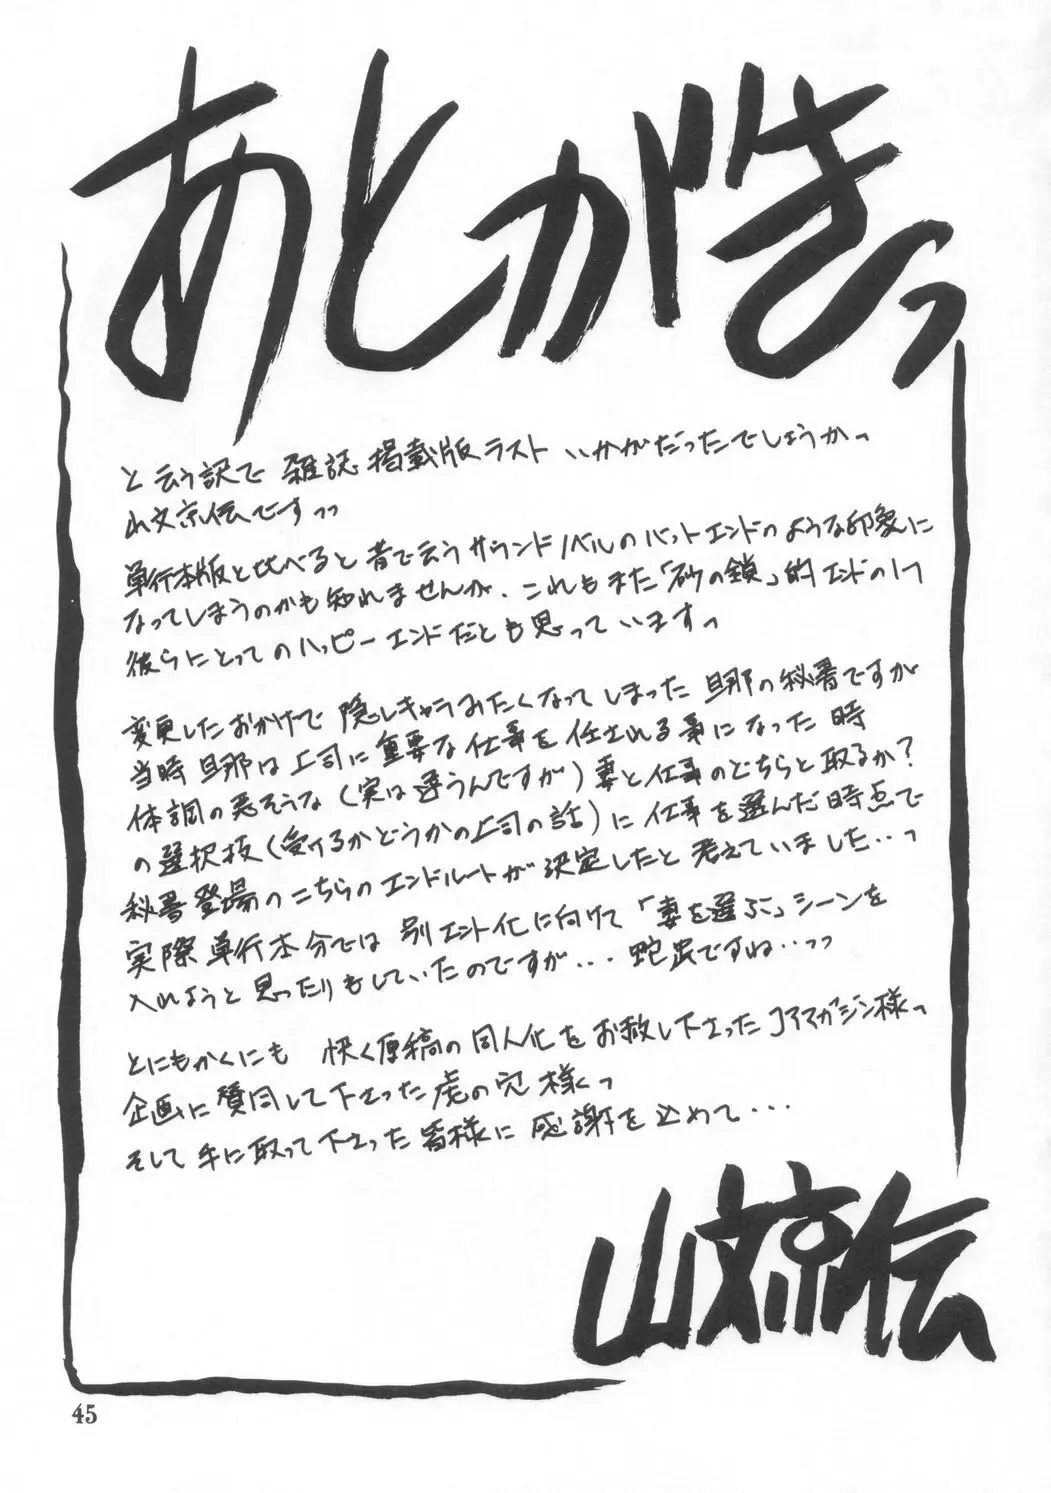 あとがきっ
と云う訳で 雑誌掲載版ラスト いかがだったでしょうかっ
山文京伝ですっっ
単行本版と比べると昔で云うサウンドノベルのバットエンドのような印象に
なってしまうのかも知れませんが、これもまた「砂の鎖」的エンドの1つ
彼らにとってのハッピーエンドだとも思っていますっ
変更したおかげで 隠しキャラみたくなってしまった旦那の秘書ですが
当時旦那は上司に重要な仕事を任される事になった時
体調の悪そうな(実は違うんですが)妻と仕事のどちらと取るか?
の選択枝(受けるかどうかの上司の話)に仕事を選んだ時点で
秘書登場のこちらのエンドルートが決定したと考えていました‥っ
実際単行本分では 別エンド化に向けて「妻を選ぶ」シーンを
入れようと思ったりもしていたのですが... 蛇足ですね‥っっ
とにもかくにも 快く原稿の同人化をお赦し下さったコアマガジン様っ
企画に賛同して下さった虎の穴様っ
そして手に取って下さった皆様に感謝を込めて...
山文京伝
45